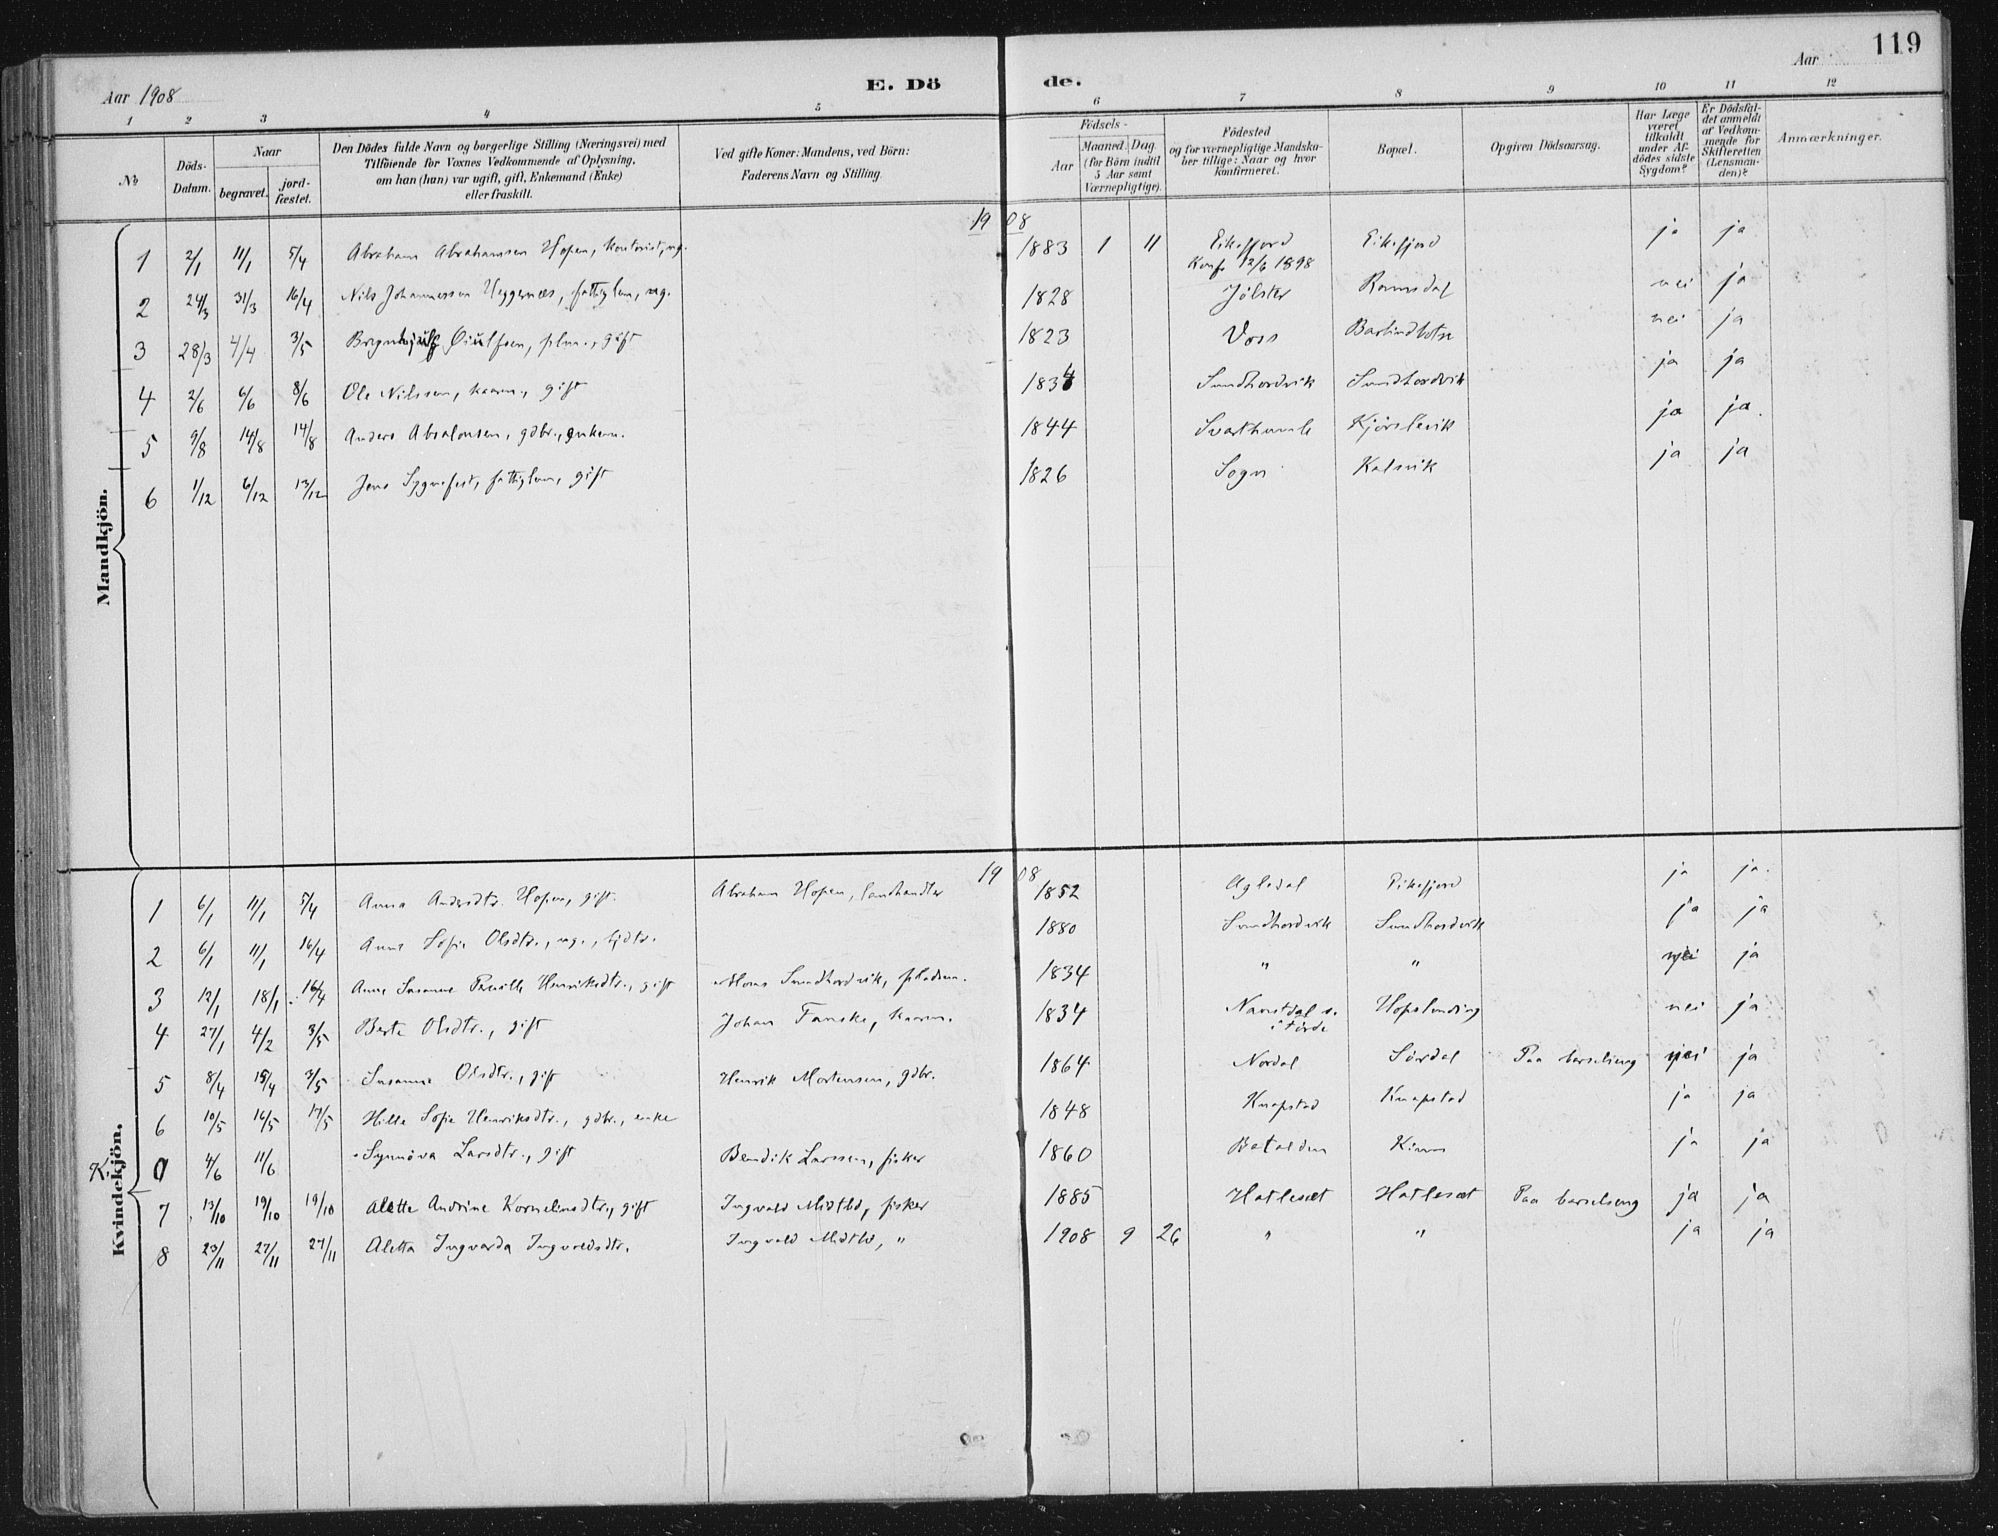 119
Aar 1908 E. Dö de. Aar
1 2 3 4 5 6 7 8 9 10 11 12
No Döds-Datum. Naar begravet. jordfæstet. Den Dödes fulde Navn og borgerlige Stilling (Næringsvei) med Tilföiende for Voxnes Vedkommende af Oplysning, om han (hun) var ugift, gift, Enkemand (Enke) eller fraskilt. Ved gifte Koner: Mandens, ved Börn: Faderens Navn og Stilling. Födsels- Aar Maaned. Dag. (for Börn indtil 5 Aar samt Værnepligtige). Födested og for værnepligtige Mandskaber tillige: Naar og hvor konfirmeret. Bopæl. Opgiven Dödsaarsag. Har Læge været tilkaldt under Afdödes sidste Sygdom? Er Dödsfaldet anmeldt af Vedkommende for Skifteretten (Lensmanden)? Anmærkninger.
Mandkjön.
19 08
1 2/1 11/1 5/4 Abraham Abrahamsen Hopen, kontorist, ug. 1883 1 11 Eikefjord Eikefjord ja ja
Konf. 12/6 1898
2 24/3 31/3 16/4 Nils Johannessen Heggernæs, fattiglem, ug. 1828 Jölster Ramsdal nei ja
3 28/3 4/4 3/5 Brynhjulf gift 1823 Voss Barlindbotn nei ja
4 2/6 6/6 8/6 Ole Nilssen, kaarm., gift 1834 Sundhordvik Sundhordvik ja ja
5 9/8 14/8 14/8 Anders Absalonsen, gdbr., enkem. 1844 Svarthumle ja ja.
6 1/12 6/12 13/12 Jens Sygnefest, fattiglem, gift 1826 Sogn Kalsvik ja ja
Kvindekjön.
19 08
1 6/1 11/1 5/4 Anna Andersdtr. Hopen, gift. Abraham Hopen, landhandler 1852 Agledal Eikefjord ja ja.
2 6/1 11/1 16/4 Anne Sofie Olsdtr., ug., 1880 Sundhordvik Sundhordvik ja ja
3 12/1 18/1 16/4 Anne Susanne Pernille Henriksdtr., gift Mons Sundhordvik, 1834 " " nei ja
4 27/1 4/2 3/5 Berte Olsdtr., gift Johan Fanske, kaarm. 1834 Naustdal s. Hopslending nei ja
i Förde
5 8/4 15/4 3/5 Susanne Olsdtr., gift Henrik Mortensen, gdbr. 1864 Nordal Sördal Paa barselseng nei ja
6 10/5 16/5 17/5 Hille Sofie Henriksdtr., gdbr., enke 1848 Knapstad Knapstad ja ja
K. 0 4/6 11/6 Synnöva Larsdtr., gift Bendik Larssen, fisker 1860 Batalden Kinn ja ja
7 13/10 19/10 19/10 Alette Andrine Korneliusdtr., gift Ingvald Midtbö, fisker 1885 Hatleset Hatleset Paa barselseng ja ja
8 23/11 27/11 27/11 Aletta Ingvarda Ingvaldsdtr. Ingvald Midtbö, " 1908 9 26 " " ja ja